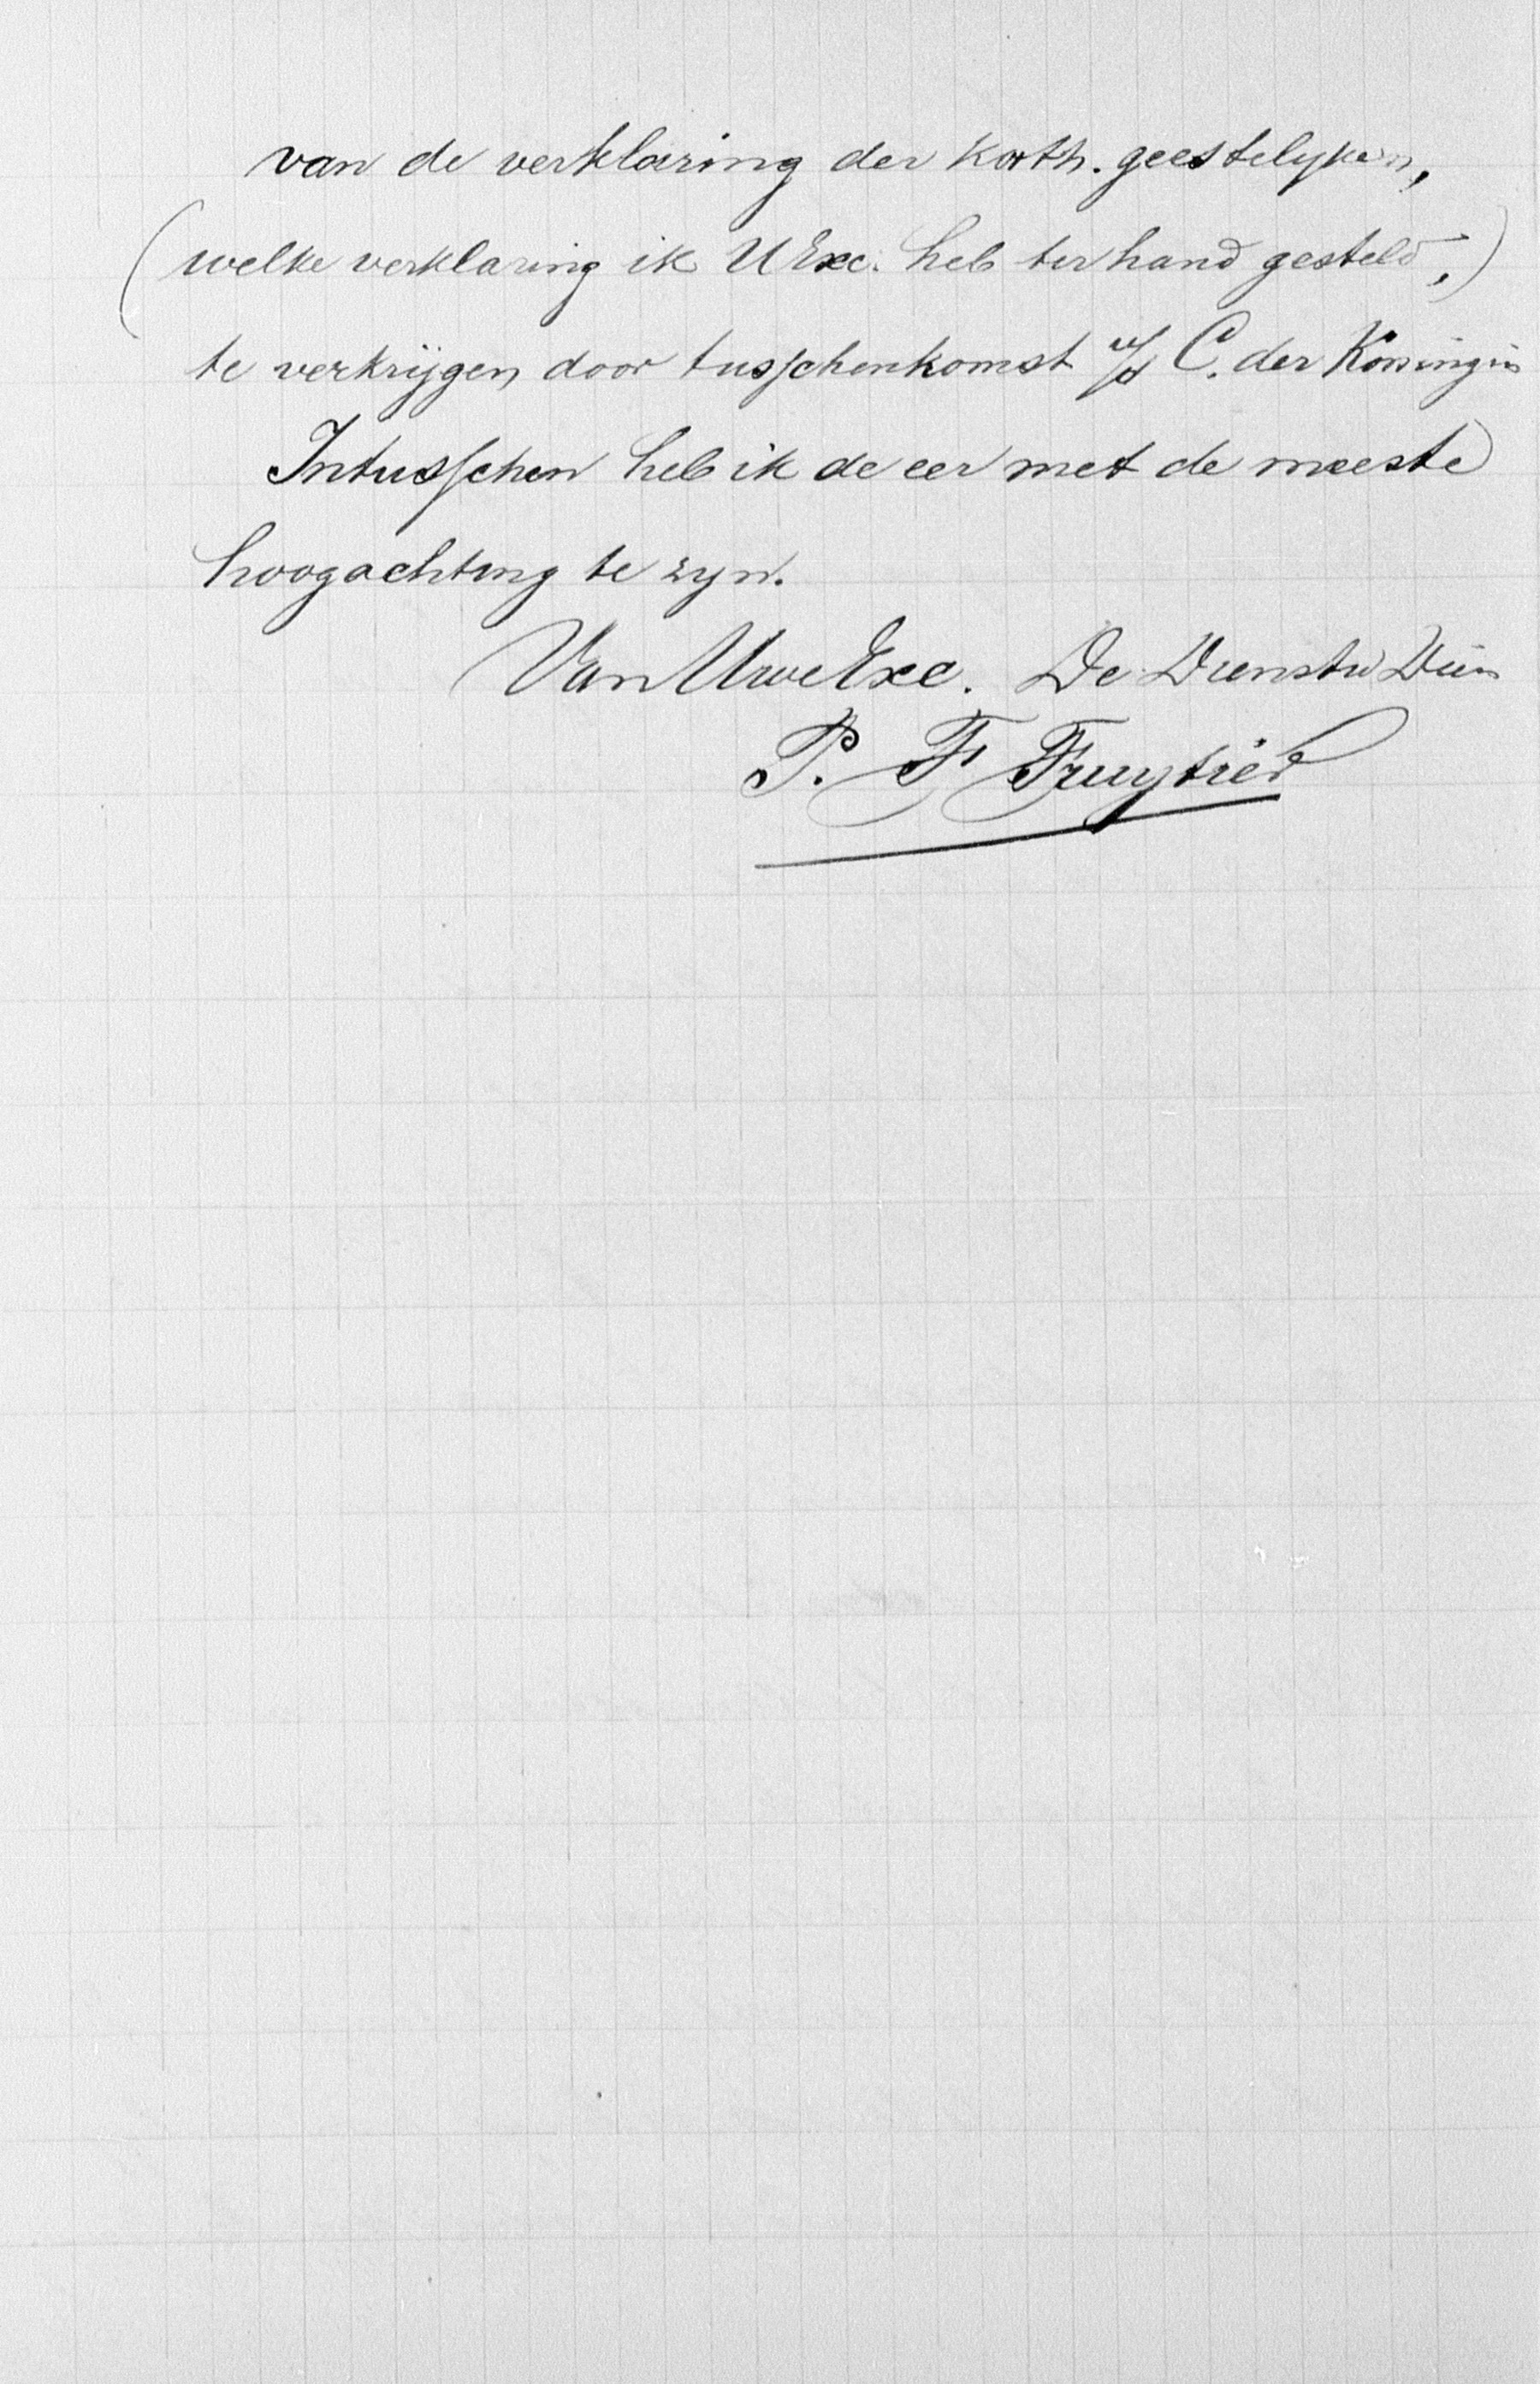 van de verklaring der kath. geestelyken,
(welke verklaring ik UExc. heb ter hand gesteld,)
te verkrijgen door tusschenkomst v/d C. der Koningin
Intusschen heb ik de eer met de meeste
hoogachting te zyn.
Van Uwe Exc. De Dienstw Dien
P. F Fruytier